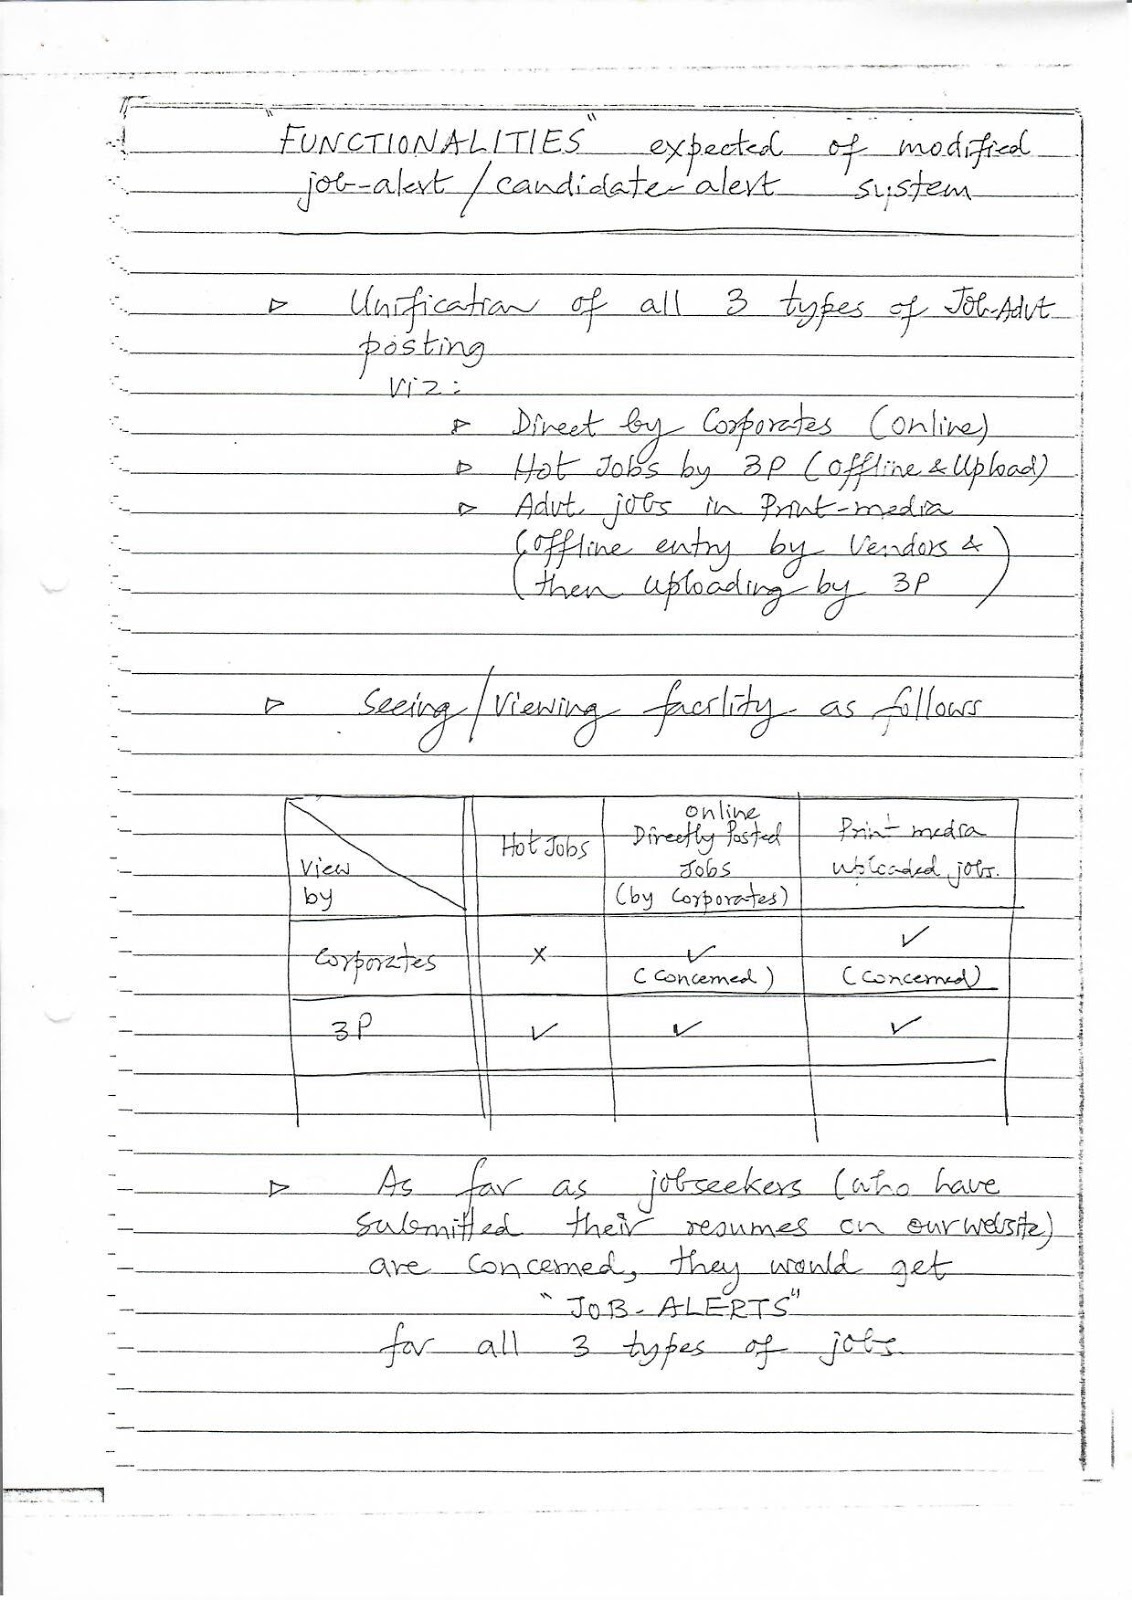 "FUNCTIONALITIES" expected of modified
job-alert / candidate-alert system
▷ Unification of all 3 types of Job-Advt
posting
viz:
▷ Direct by Corporates (online)
▷ Hot Jobs by 3P (offline & Upload)
▷ Advt. jobs in Print-media
(offline entry by Vendors &
then uploading by 3P)
▷ Seeing/Viewing facility as follows
View by
Hot Jobs
Online Directly Posted Jobs (by Corporates)
Print media uploaded jobs.
Corporates x ✓ (Concerned) ✓ (Concerned)
3P ✓ ✓ ✓
▷ As far as jobseekers (who have
submitted their resumes on our website)
are concerned, they would get
"JOB-ALERTS"
for all 3 types of jobs.